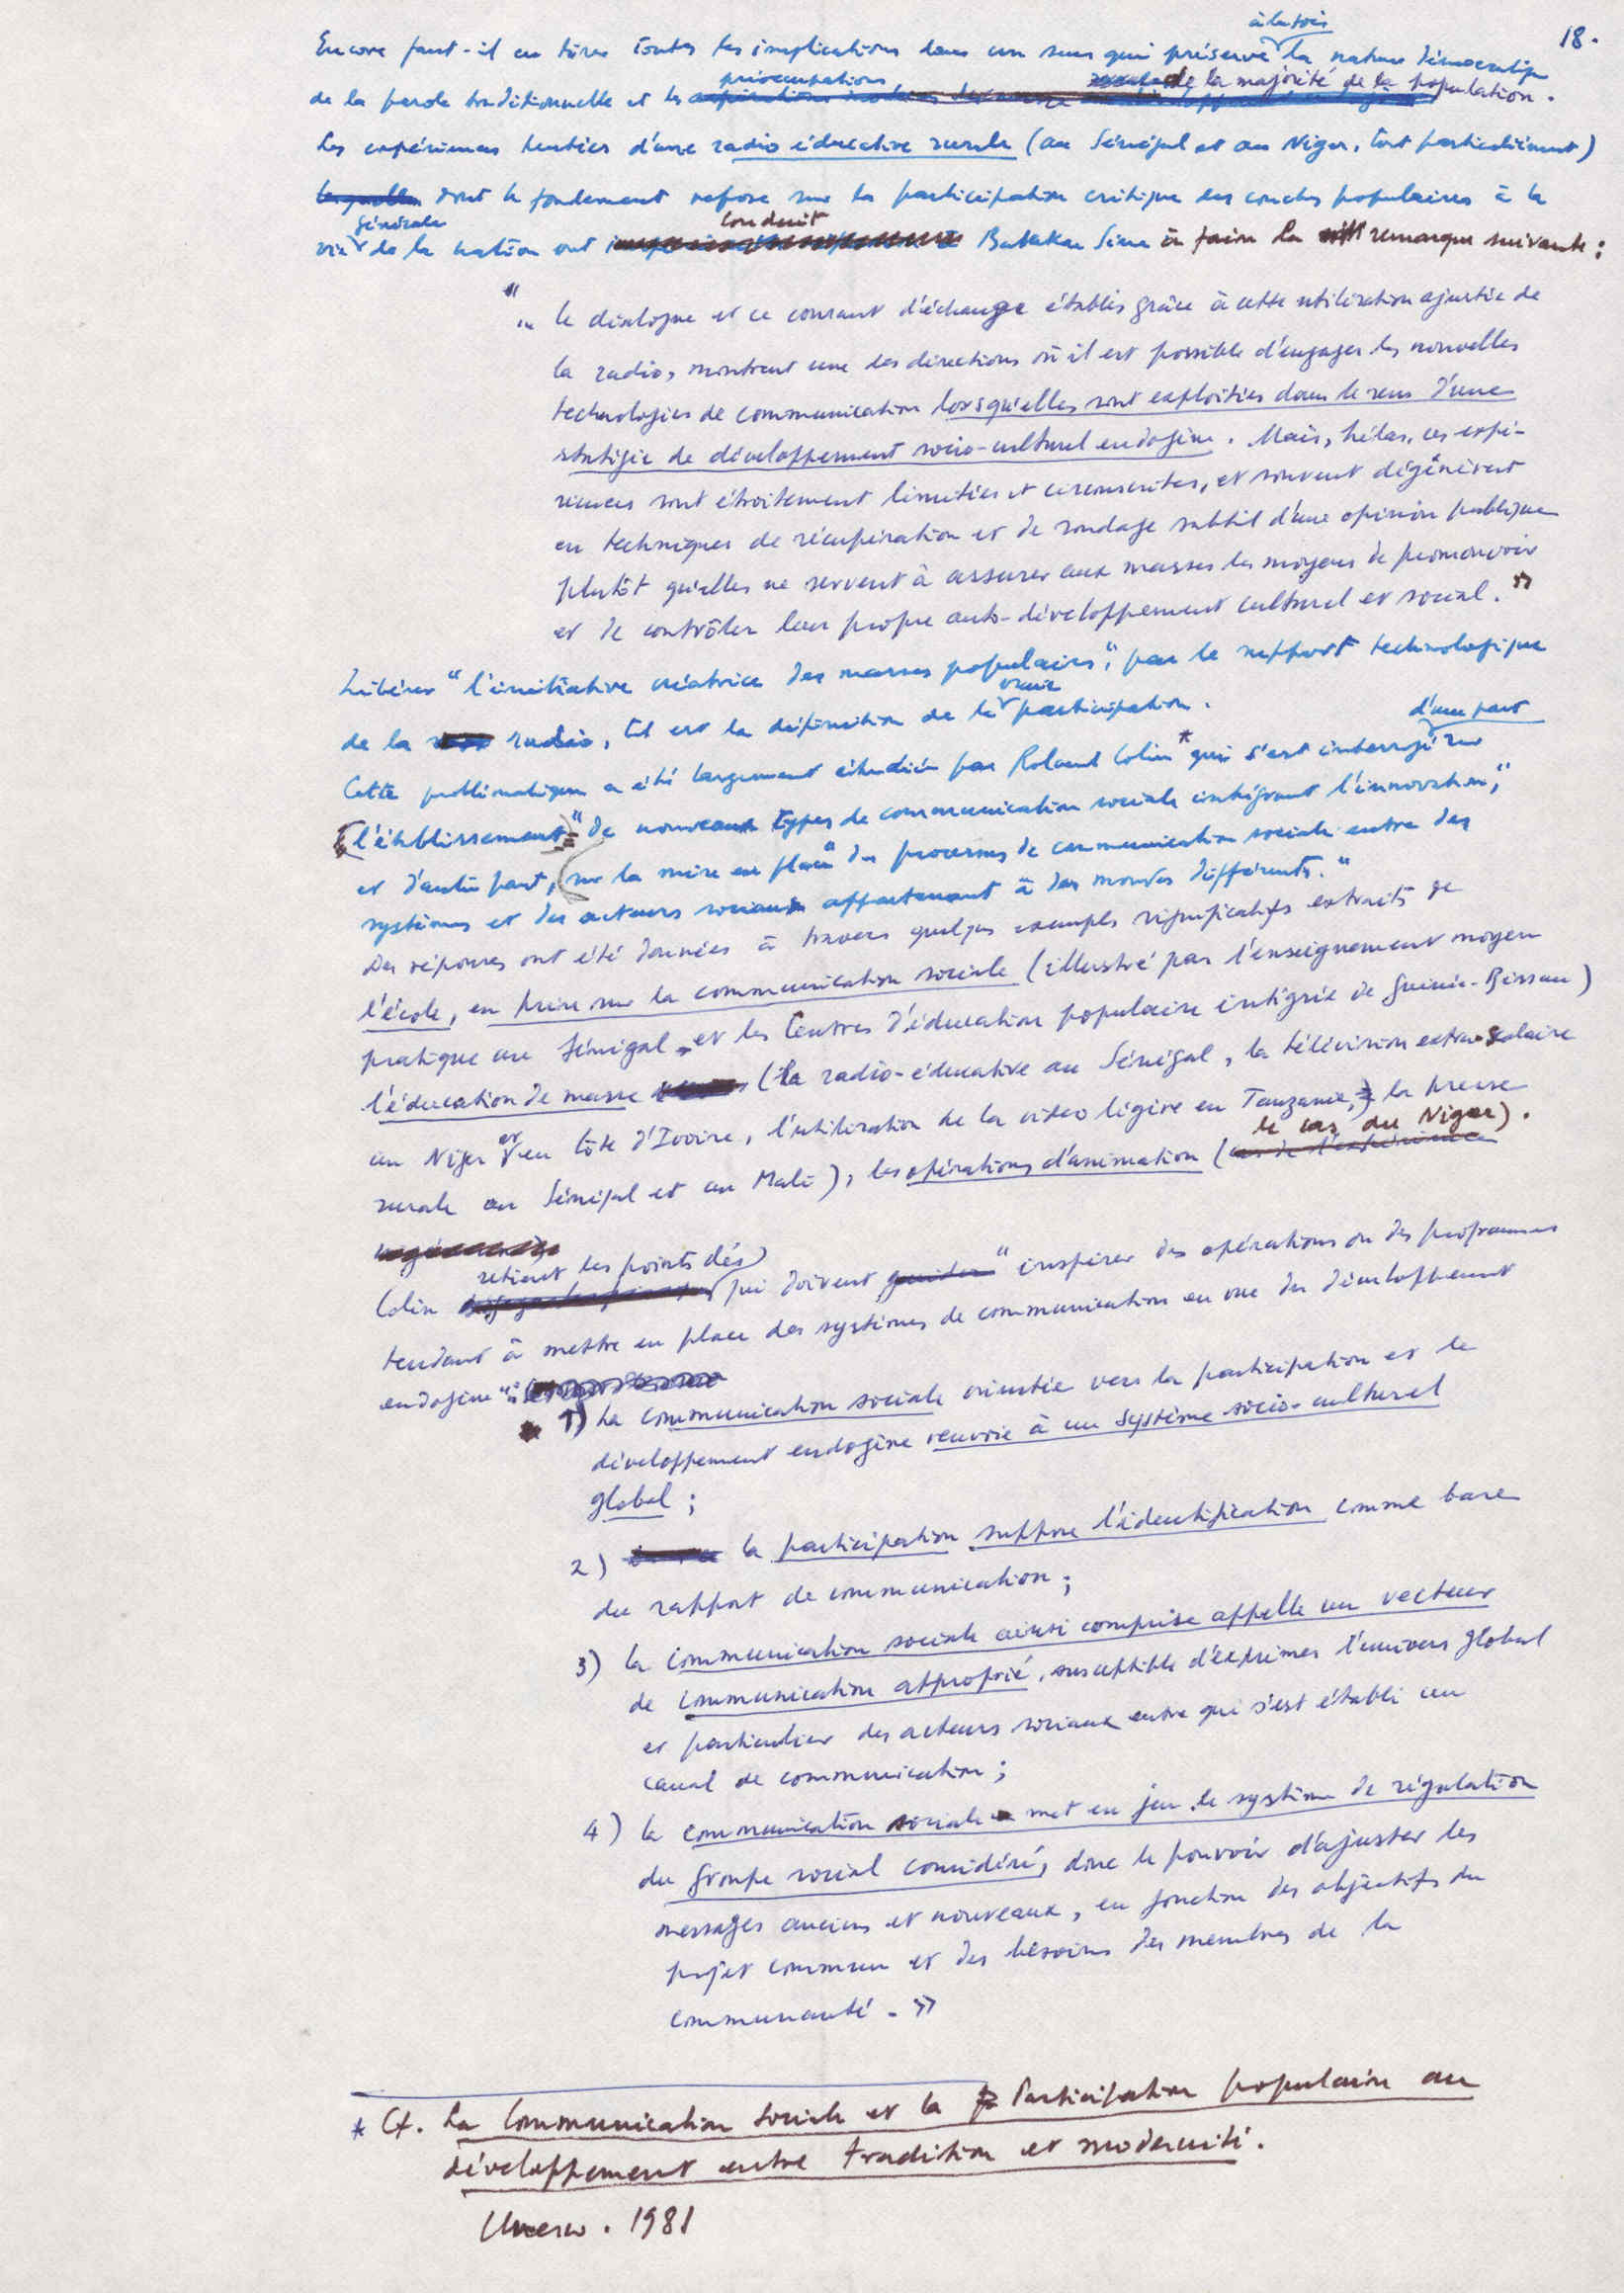 18.
Encore faut-il en tirer toutes les implications dans un sens qui préserve à la fois la nature démocratique
de la parole traditionnelle et les préoccupations de la majorité de la population.
Les expériences tentées d'une radio éducative rurale (au Sénégal et au Niger, tout particulièrement)
dont le fondement repose sur la participation critique des couches populaires à la
vie générale de la nation ont conduit Babakar Sine à faire la remarque suivante :
"... le dialogue et ce courant d'échange établis grâce à cette utilisation ajustée de
la radio, montrent une des directions où il est possible d'engager les nouvelles
technologies de communication lorsqu'elles sont exploitées dans le sens d'une
stratégie de développement socio-culturel endogène. Mais, hélas, ces expé-
riences sont étroitement limitées et circonscrites, et souvent dégénèrent
en techniques de récupération et de sondage subtil d'une opinion publique
plutôt qu'elles ne servent à assurer aux masses les moyens de promouvoir
et de contrôler leur propre auto-développement culturel et social."
Libérer "l'initiative créatrice des masses populaires", par le support technologique
de la radio, tel est la définition de la vraie participation.
Cette problématique a été largement étudiée par Roland Colin* qui s'est interrogé d'une part sur
l'établissement "de nouveaux types de communication sociale intégrant l'innovation,"
et d'autre part, sur la mise en place "des processus de communication sociale entre des
systèmes et des acteurs sociaux appartenant à des mondes différents."
Des réponses ont été données à travers quelques exemples significatifs extraits de
l'école, en prise sur la communication sociale (illustré par l'enseignement moyen
pratique au Sénégal et les Centres d'éducation populaire intégrée de Guinée-Bissau)
l'éducation de masse (la radio-éducative au Sénégal, la télévision extra-scolaire
au Niger et en Côte d'Ivoire, l'utilisation de la video légère en Tanzanie, la presse
rurale au Sénégal et au Mali), les opérations d'animation (le cas du Niger).
Colin retient les points clés qui doivent "inspirer des opérations ou des programmes
tendant à mettre en place des systèmes de communication en vue du développement
endogène" :
1) La communication sociale orientée vers la participation et le
développement endogène renvoie à un système socio-culturel
global ;
2) la participation suppose l'identification comme base
du rapport de communication ;
3) la communication sociale ainsi comprise appelle un vecteur
de communication approprié, susceptible d'exprimer l'univers global
et particulier des acteurs sociaux entre qui s'est établi un
canal de communication ;
4) la communication sociale met en jeu le système de régulation
du groupe social considéré, donc le pouvoir d'ajuster les
messages anciens et nouveaux, en fonction des objectifs du
projet commun et des besoins des membres de la
communauté. "
* Cf. La Communication Sociale et la Participation populaire au
développement entre tradition et modernité.
Unesco. 1981